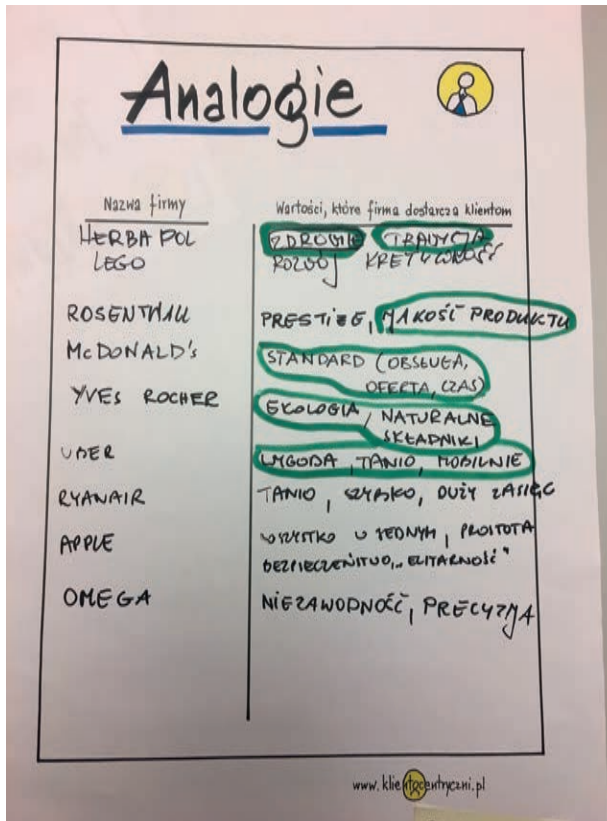 Analogie
Nazwa firmy
Wartości, które firma dostarcza klientom
HERBA POL
ZDROWIE TRADYCJA
LEGO
ROZWÓJ KRETYWNOŚĆ
ROSENTHAU
PRESTIŻE, JAKOŚĆ PRODUKTU
McDONALD's
STANDARD (OBSŁUGA,
OFERTA, CZAS)
YVES ROCHER
EKOLOGIA, NATURALNE
SKŁADNIKI
UBER
WYGODA, TANIO, MOBILNIE
RYANAIR
TANIO, SZYBKO, DUŻY ZASIĘG
APPLE
WSZYSTKO W JEDNYM, PROSTOTA
BEZPIECZEŃSTWO, „ELITARNOŚĆ"
OMEGA
NIEZAWODNOŚĆ, PRECYZJA
www.klientocentryczni.pl